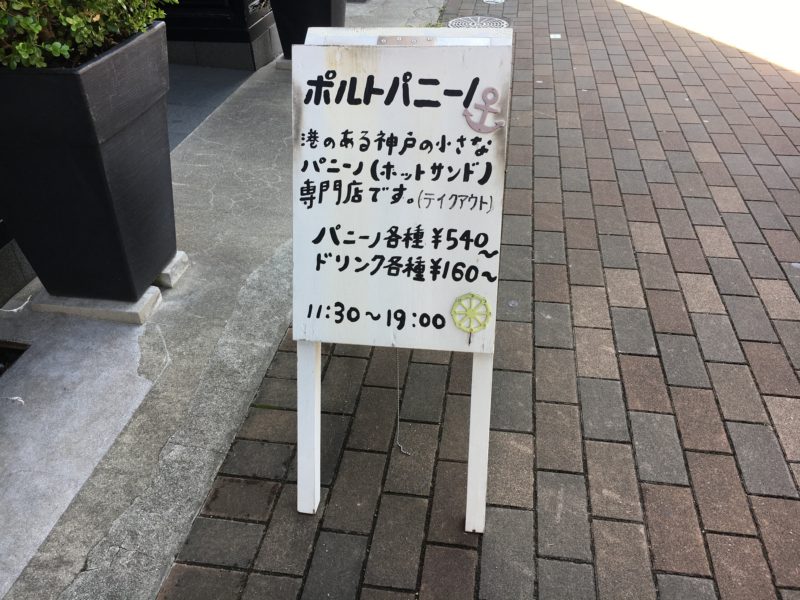 ポルトパニーノ
港のある神戸の小さな
パニーノ(ホットサンド)
専門店です。(テイクアウト)
パニーノ各種¥540~
ドリンク各種¥160~
11:30~19:00